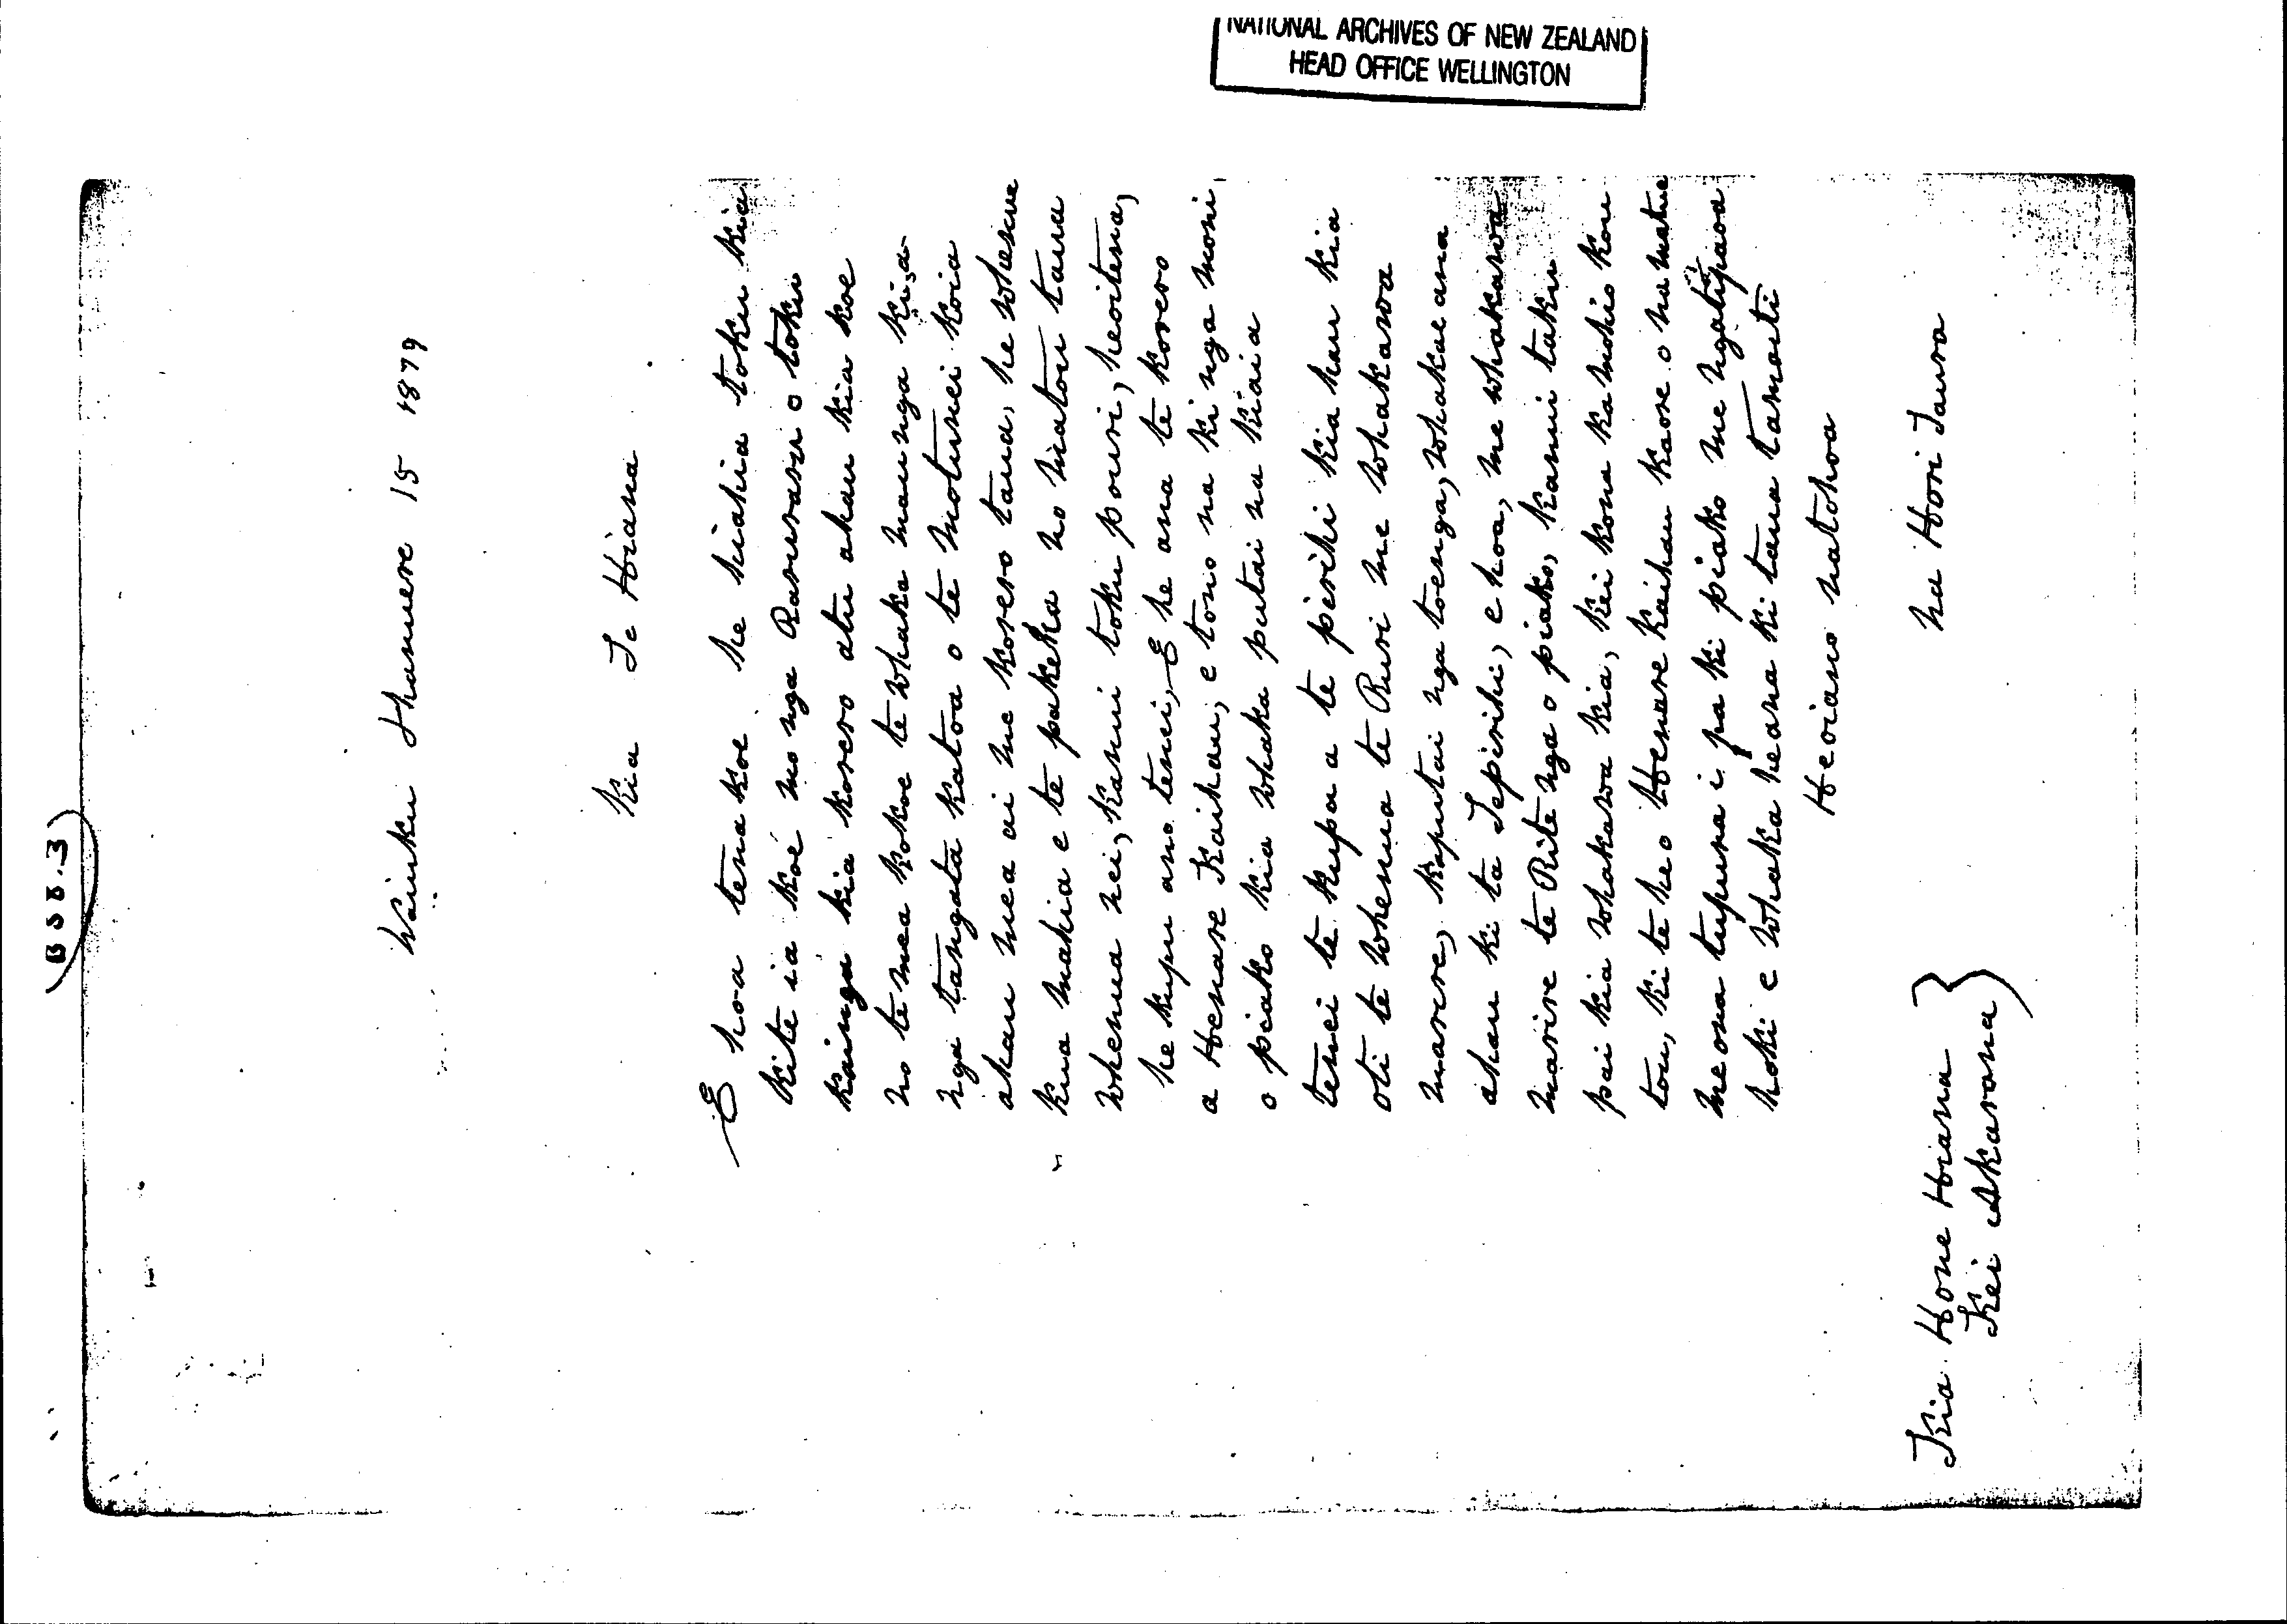 NATIONAL ARCHIVES OF NEW ZEALAND
HEAD OFFICE WELLINGTON
B 58.3
Waiuku Hanuere 15 1879
Kia Te Hiana
E hoa tena koe he hiahia toku kia
kite ia koe mo nga Raruraru o toku
kainga kia korero atu ahau kia koe
no te mea kokoe te whaka maunga kisa
nga tangata katoa o te motunei koia
ahau mea ai me korero taua, he whenua
kua mahia e te pakeha no matou taua
whenua nei, kanui toku pouri, heoitena,
he kupu ano tenei, E he ana te korero
a Henare Kaihau, e tono na ki nga moni
o piako kia whaka putai na kiaia
tenei te kupu a te piriki kia hau kia
oti te whenua te Ruri me whakawa
marire, kaputai nga toenga, whakae ana
ahau ki ta Tepiriki, e hoa, me whakawa
marire te Rite nga o piako, kanui taku
pai kia whakawa kia, kei kona ka mohio kou
tou, ki te he o Henare Kaihau kaore o na matua
me ona tupuna i pa ki piako me ngatipaoa
hoki e whaka heana ki taua tamaiti
Heoiano natohoa
na Hori Tauroa
Kia Hone Hiana
Kei Akarana